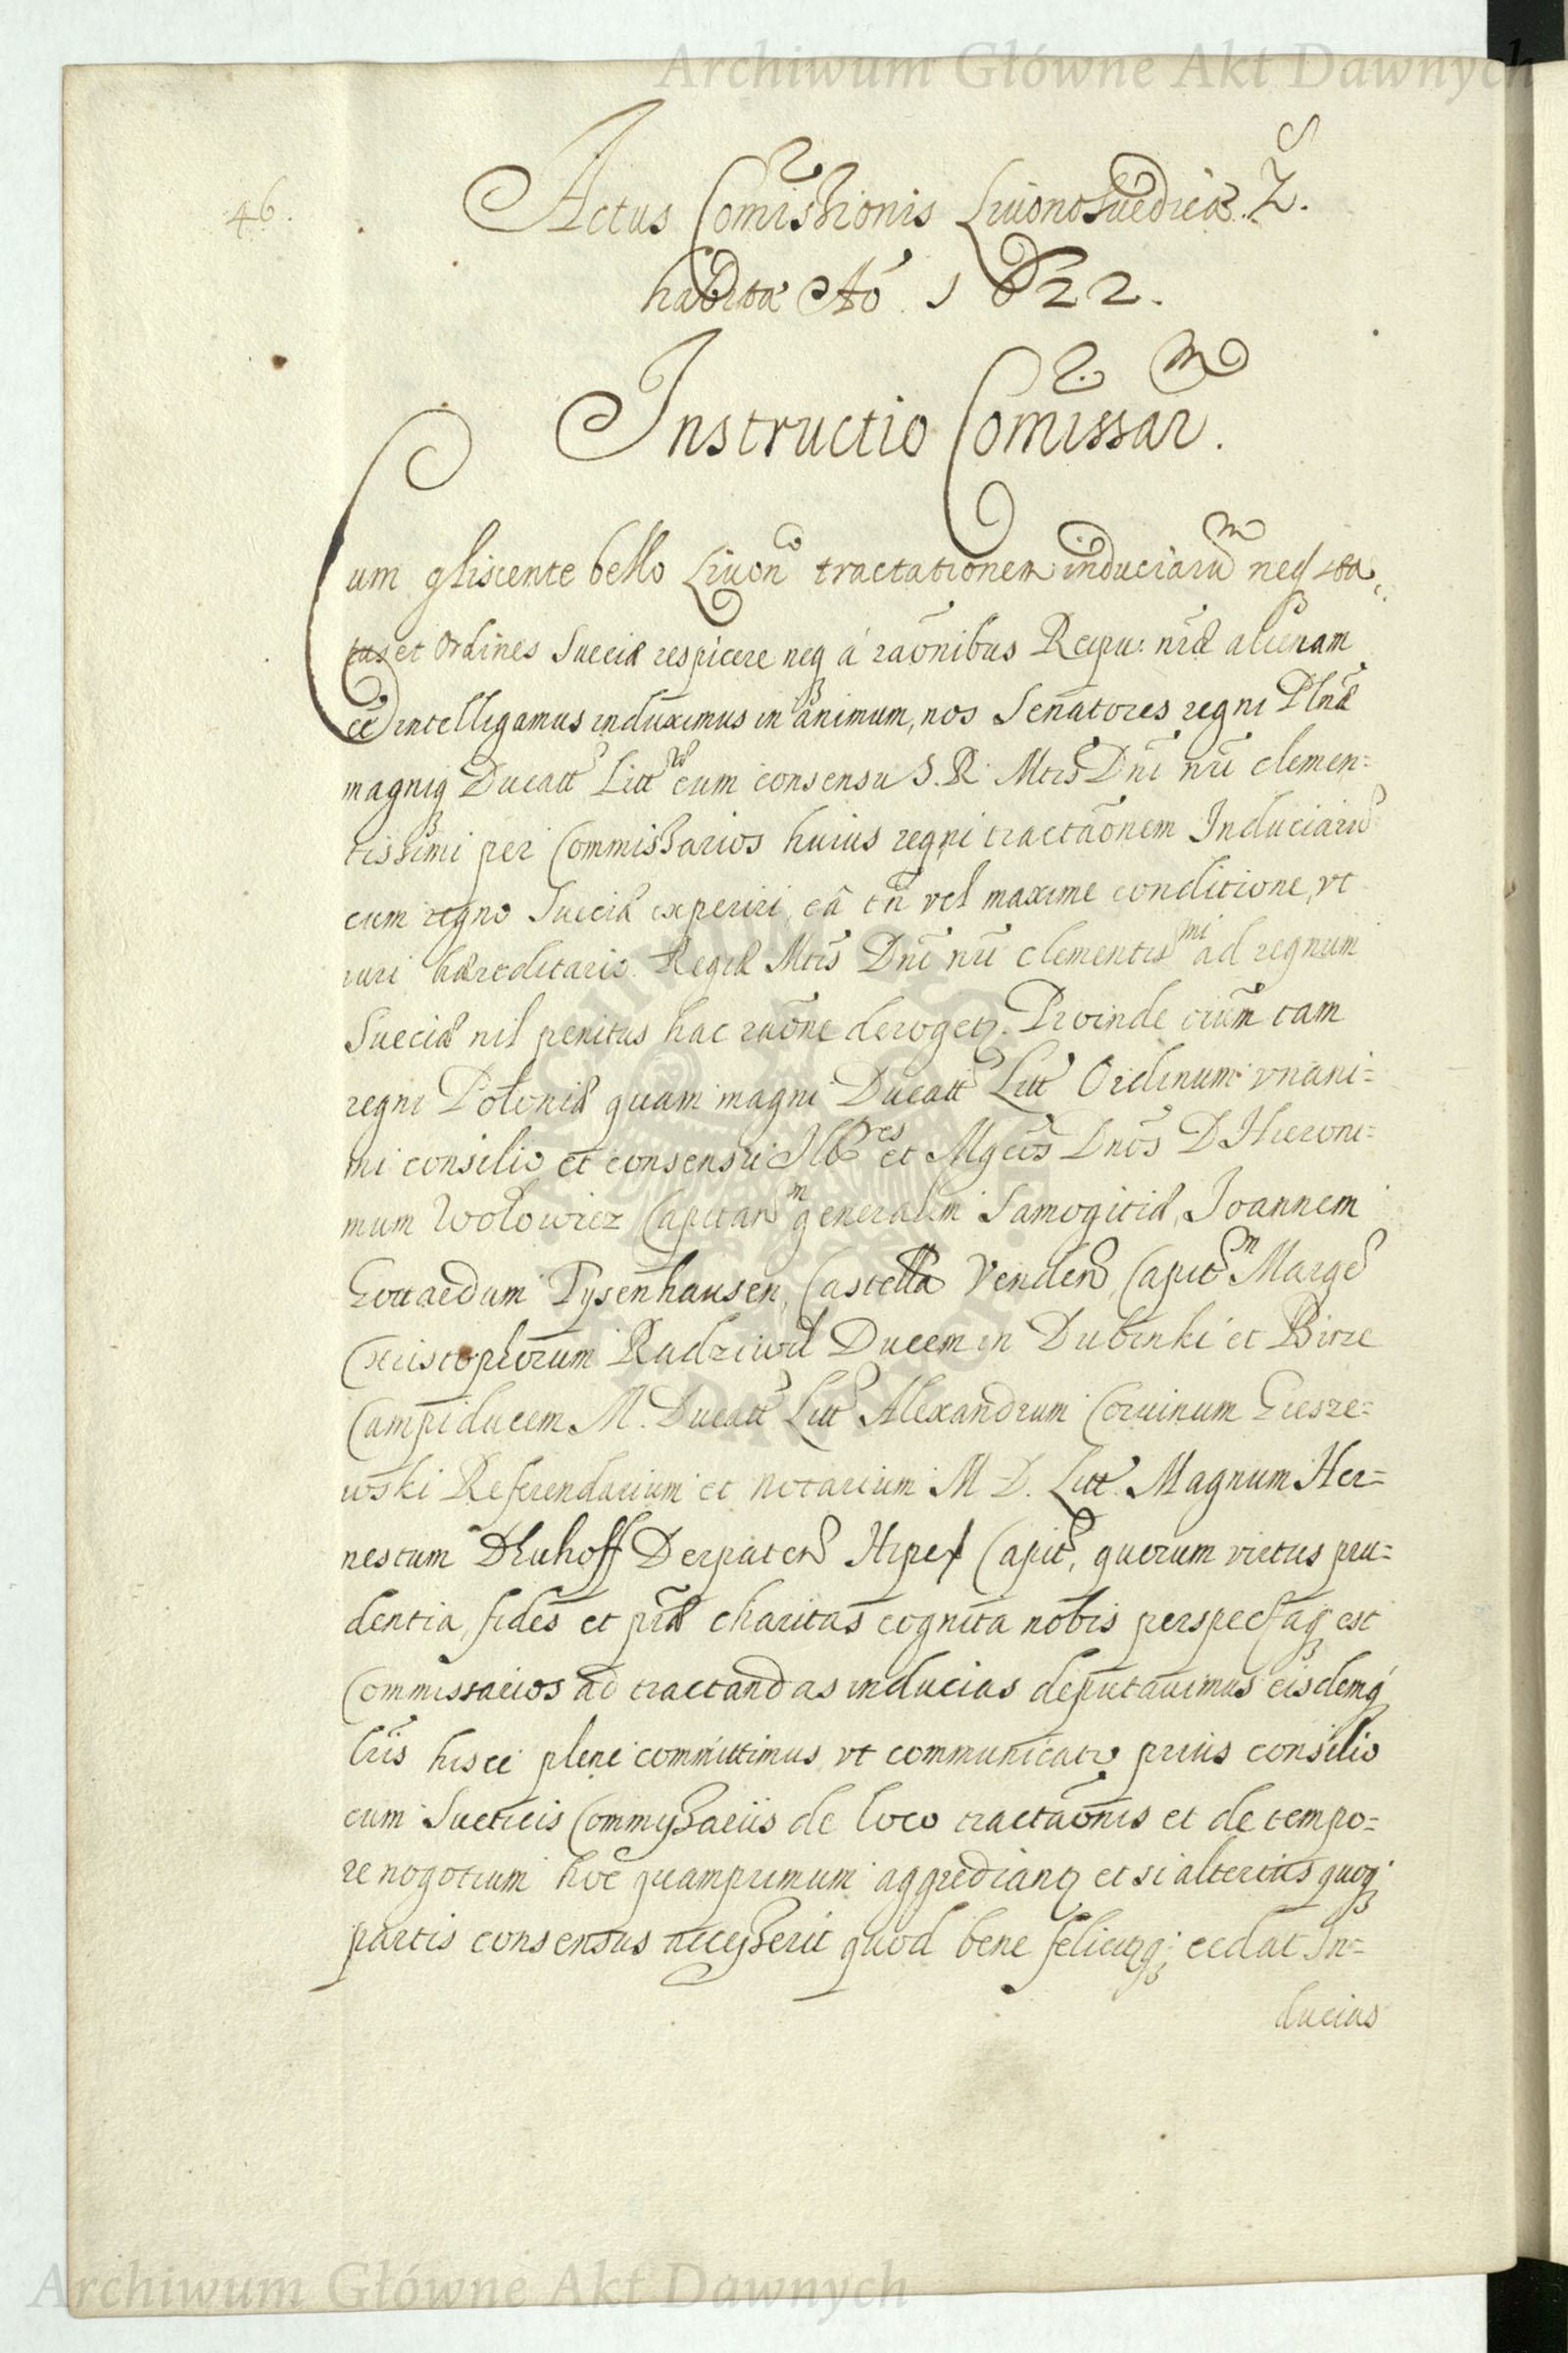 Archiwum Główne Akt Dawnych
46.
Actus Com̄issionis Liuonosuedicæ
habitæ Aō 1622.
Instructio Com̄issar.
Cum gliscente bello Liuon tractationem induciarū neq sta
tus et Ordines Sueciæ respicere neq á raōnibus Reipu: nr̄æ alienam
eē intelligamus induximus in animum, nos Senatores regni Plnæ
magniq Ducatt Litt cum consensu S. R. Mtis Dnī nrī clemen=
tissimi per Commissarios huius regni tractaōnem Induciarū
cum regno Sueciæ experiri, eâ tn̄ vel maxime conditione, vt
iuri hæreditario Regiæ Mtis Dnī nrī clementissmi ad regnum
Sueciæ nil penitus hac raōne deroget. Proinde cum tam
regni Poloniæ quam magni Ducatt Litt Ordinum vnani=
mi consilio et consensu Illres et Mgcos Dnōs D Hieroni=
mum Wołowicz Capitan generalem Samogitiæ, Joannem
Tysenhausen, Castella Venden, Capit Marge
Christophorum Radziwil Ducem in Dubinki et Birze
Campiducem M. Ducatt Litt Alexandrum Coruinum Gąsze=
wski Referendarium et notarium M D. Litt. Magnum Her=
nestum Dhuhoff Derpaten Capit, quorum virtus pru=
dentia, fides et pr̄iæ charitas cognita nobis perspectaq est
Commissarios ad tractandas inducias deputauimus eisdemq
lrīs hisce plene committimus, vt communicato prius consilio
cum Sueticis Commyssariis de loco tractaōnis et de tempo=
re nogotium hoc quamprimum aggrediantur et si alterius quoq
partis consensus accesserit quod bene feliciterq; cedat In=
ducias
Archiwum Główne Akt Dawnych